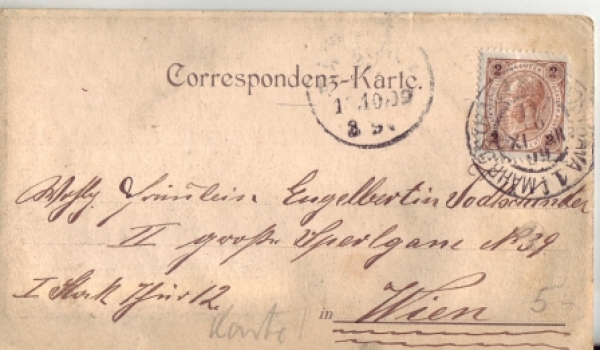 Correspondenz-Karte.
2 2
8
1
Wohlg. Fräulein Engelbertin
II große Sperlgasse No 39
I Stock Thür 12.
in Wien
5-
Karte